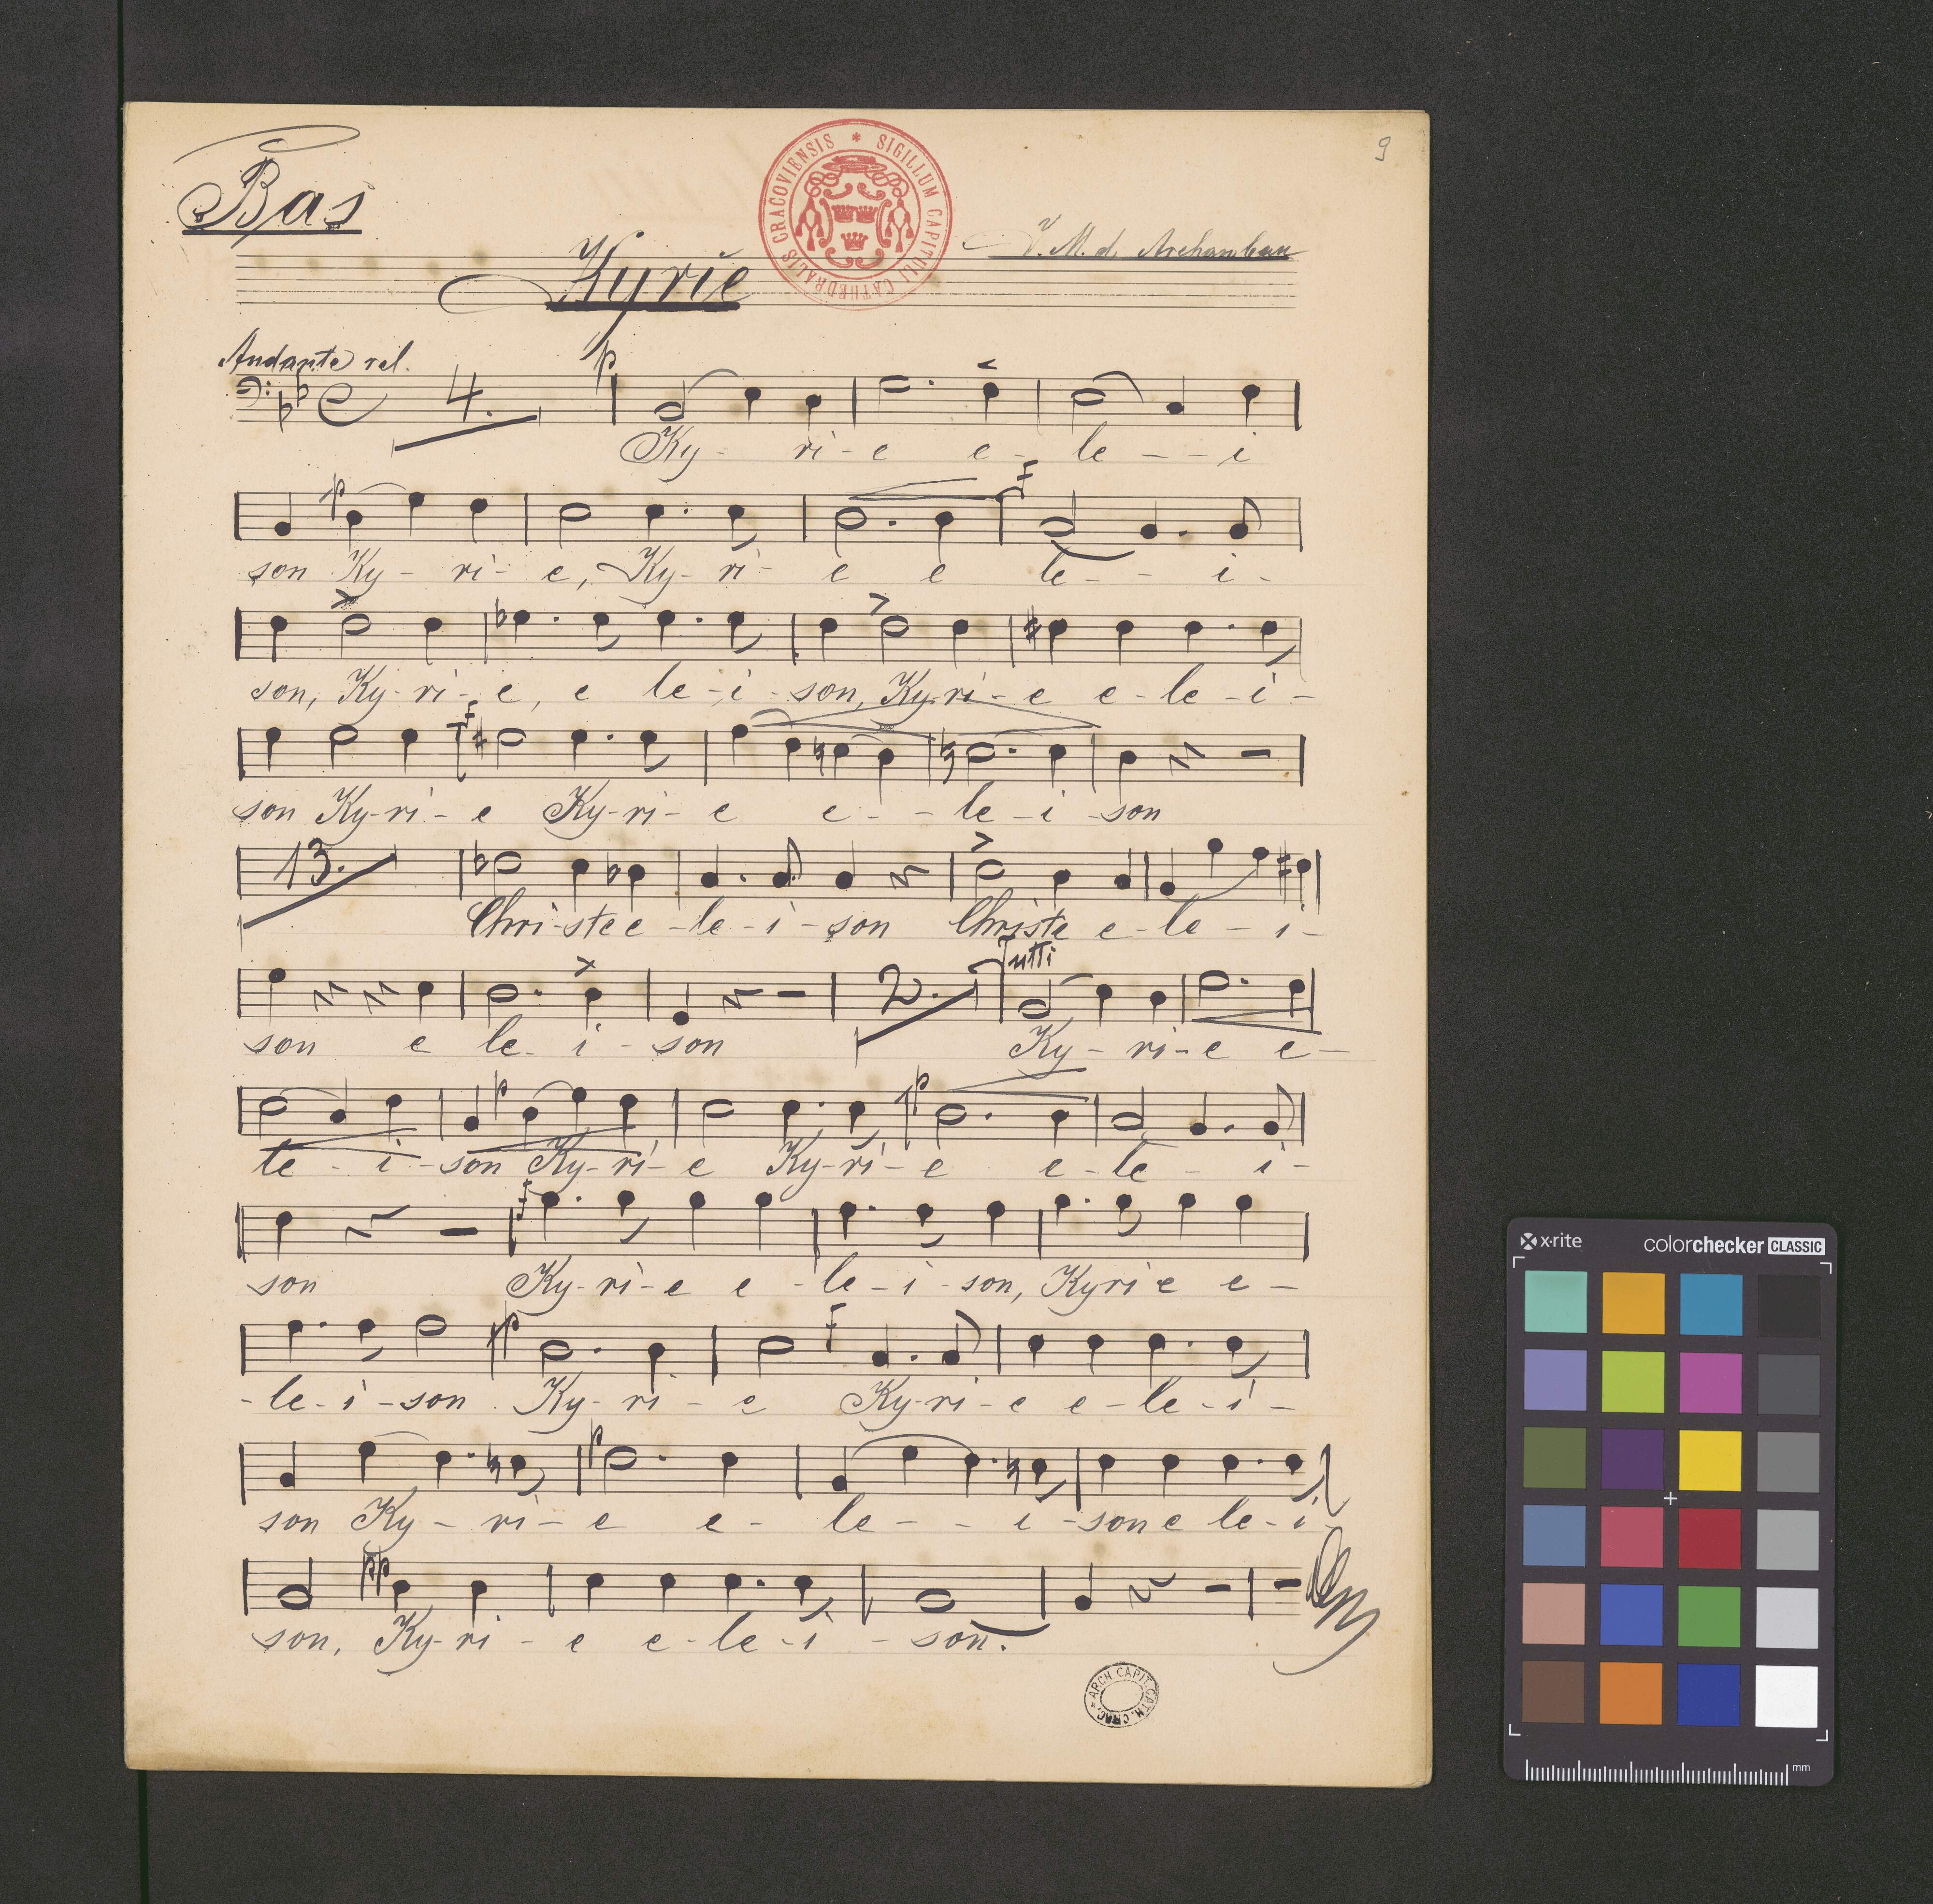 9
Bas
SIGILLUM CAPITULI CATHEDRALIS CRACOVIENSIS
Kyrie
V. M. d. Archambeau
Andante rel.
4. p
Ky - ri - e e - le - - i
p f
son Ky - ri - e, Ky - ri - e e le - - i -
son, Ky - ri - e, e le - i - son, Ky - ri - e e - le - i -
f
son Ky - ri - e Ky - ri - e e - - le - i - son
13.
Chri - ste e - le - i - son Christe e - le - i -
2. Tutti
son e le - i - son Ky - ri - e e -
p p
le - i - son Ky - ri - e Ky - ri - e e - le - i -
f
son Ky - ri - e e - le - i - son, Kyrie e -
p f
- le - i - son Ky - ri - e Ky - ri - e e - le - i -
p
son Ky - ri - e e - le - - i - son e le - i -
pp
son, Ky - ri - e e - le - i - son.
ARCH. CAPIT. CATH. CRAC.
x-rite
colorchecker CLASSIC
mm